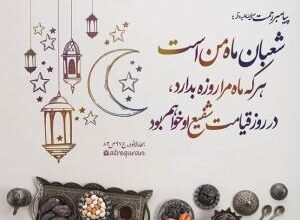 پیامبر رحمت صلی‌الله علیه و آله:
شعبان ماه من است
هر که ماه مرا روزه بدارد،
در روز قیامت شفیع او خواهم بود
بحارالانوار، ج۹۷ ص۸۳
@atrequran